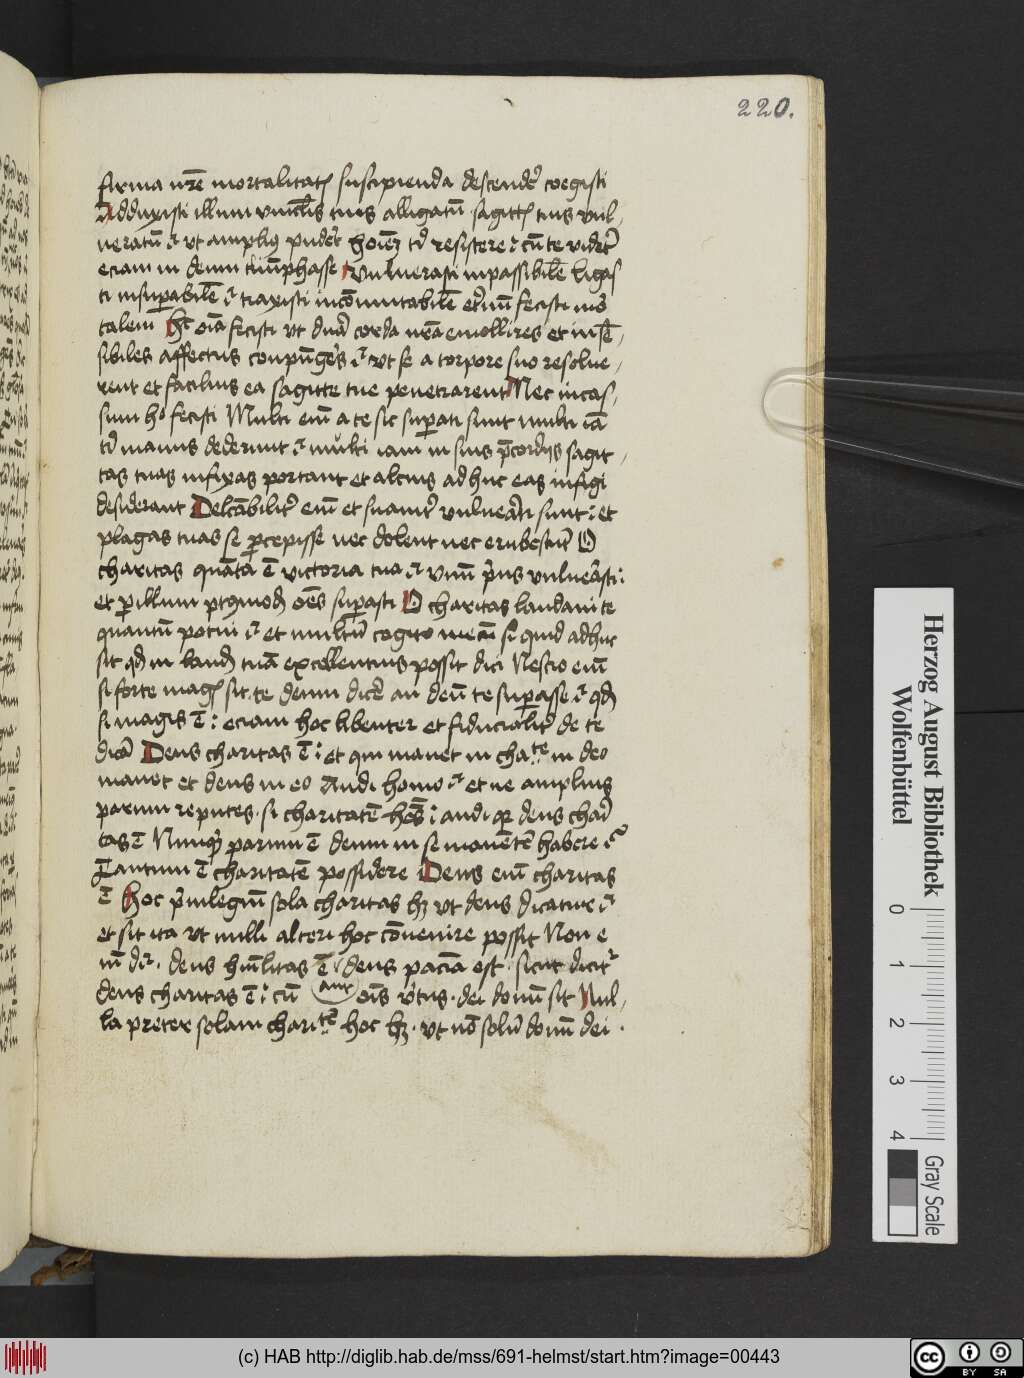 220.
firma nr̄e mortalitatꝭ suscipienda descende᷑ coegisti
Adduxisti illum vinclīs tuis alligatū sagittꝭ tuis vul-
neratū ⁊ vt amplius pudeēt hoīem tꝭ resistere ⁊ cū te videēt
eciam in deum triūphasse Vulnerasti inpassibilē ligas
ti insuꝑabilē ⁊ traxisti incōmutabilē et̄nū fecisti mor
talem Hec oīa fecisti vt durā corda nr̄a emollires et insē-
sibiles affectus conpūgēs ⁊ vt se a torpore suo resolue-
rent et facilius ea sagitte tue penetrarent Nec incas-
sum hoc fecisti Multi eīm a te sic suꝑati sunt multi iā
tꝭ manus dederunt ⁊ multi iam in suis p̄cordijs sagit-
tas tuas infixas portant et alcius adhuc eas infigi
desiderant Delcābilit᷑ eīm et suauit᷑ vulnerati sunt ⁊ et
plagas tuas se ꝑcepisse nec dolent nec erubescūt O
charitas quāta ē victoria tua ⁊ vnū p̄us vulnerasti ⁊
et ꝑ illum ptꝯmodū oēs suꝑasti O charitas laudaui te
quantū potui ⁊ et multū cogito mecū si quid adhuc
sit qd in laudꝭ tuā excellentius possit dici Nescio eīm
si forte magꝭ sit te deum dicē an deū te suꝑasse ⁊ qd
si magis ē ⁊ eciam hoc libenter et fiducialit᷑ de te
dicā Deus charitas ē ⁊ et qui manet in cha.te in deo
manet et deus in eo Audi homo ⁊ et ne amplius
parum reputes si charitatē hēs ⁊ audi qꝛ deus chari
tas ē Nunqd parum ē deum in se manētē habere ⁊
Tantum ē charitatē possidere Deus eīm charitas
ē Hoc p̄uilegiū sola charitas hꝫ vt deus dicatur ⁊
et sit ita vt nulli alteri hoc cōuenire possit Non e
nī dr̄ deus hūilitas ē deus paciā est sicut dicit᷑
deus charitas ē ⁊ cū
aut
oīs v̄tus dei donū sit Nul-
la preter solam charite hoc hꝫ vt nō solū donū dei
Herzog August Bibliothek
Wolfenbüttel
0 1 2 3 4
Gray Scale
(c) HAB http://diglib.hab.de/mss/691-helmst/start.htm?image=00443
cc BY SA